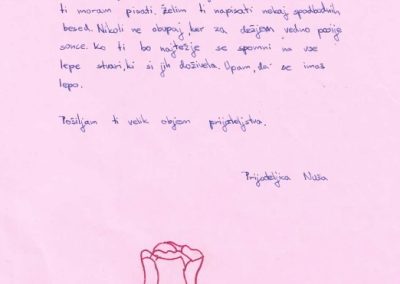 ti moram pisati. Želim ti napisati nekaj spodbudnih
besed. Nikoli ne obupaj, ker za dežjem vedno posije
sonce. Ko ti bo najtežje se spomni na vse
lepe stvari, ki si jih doživela. Upam, da se imaš
lepo.
Pošiljam ti velik objem prijateljstva.
Prijateljica Nuša